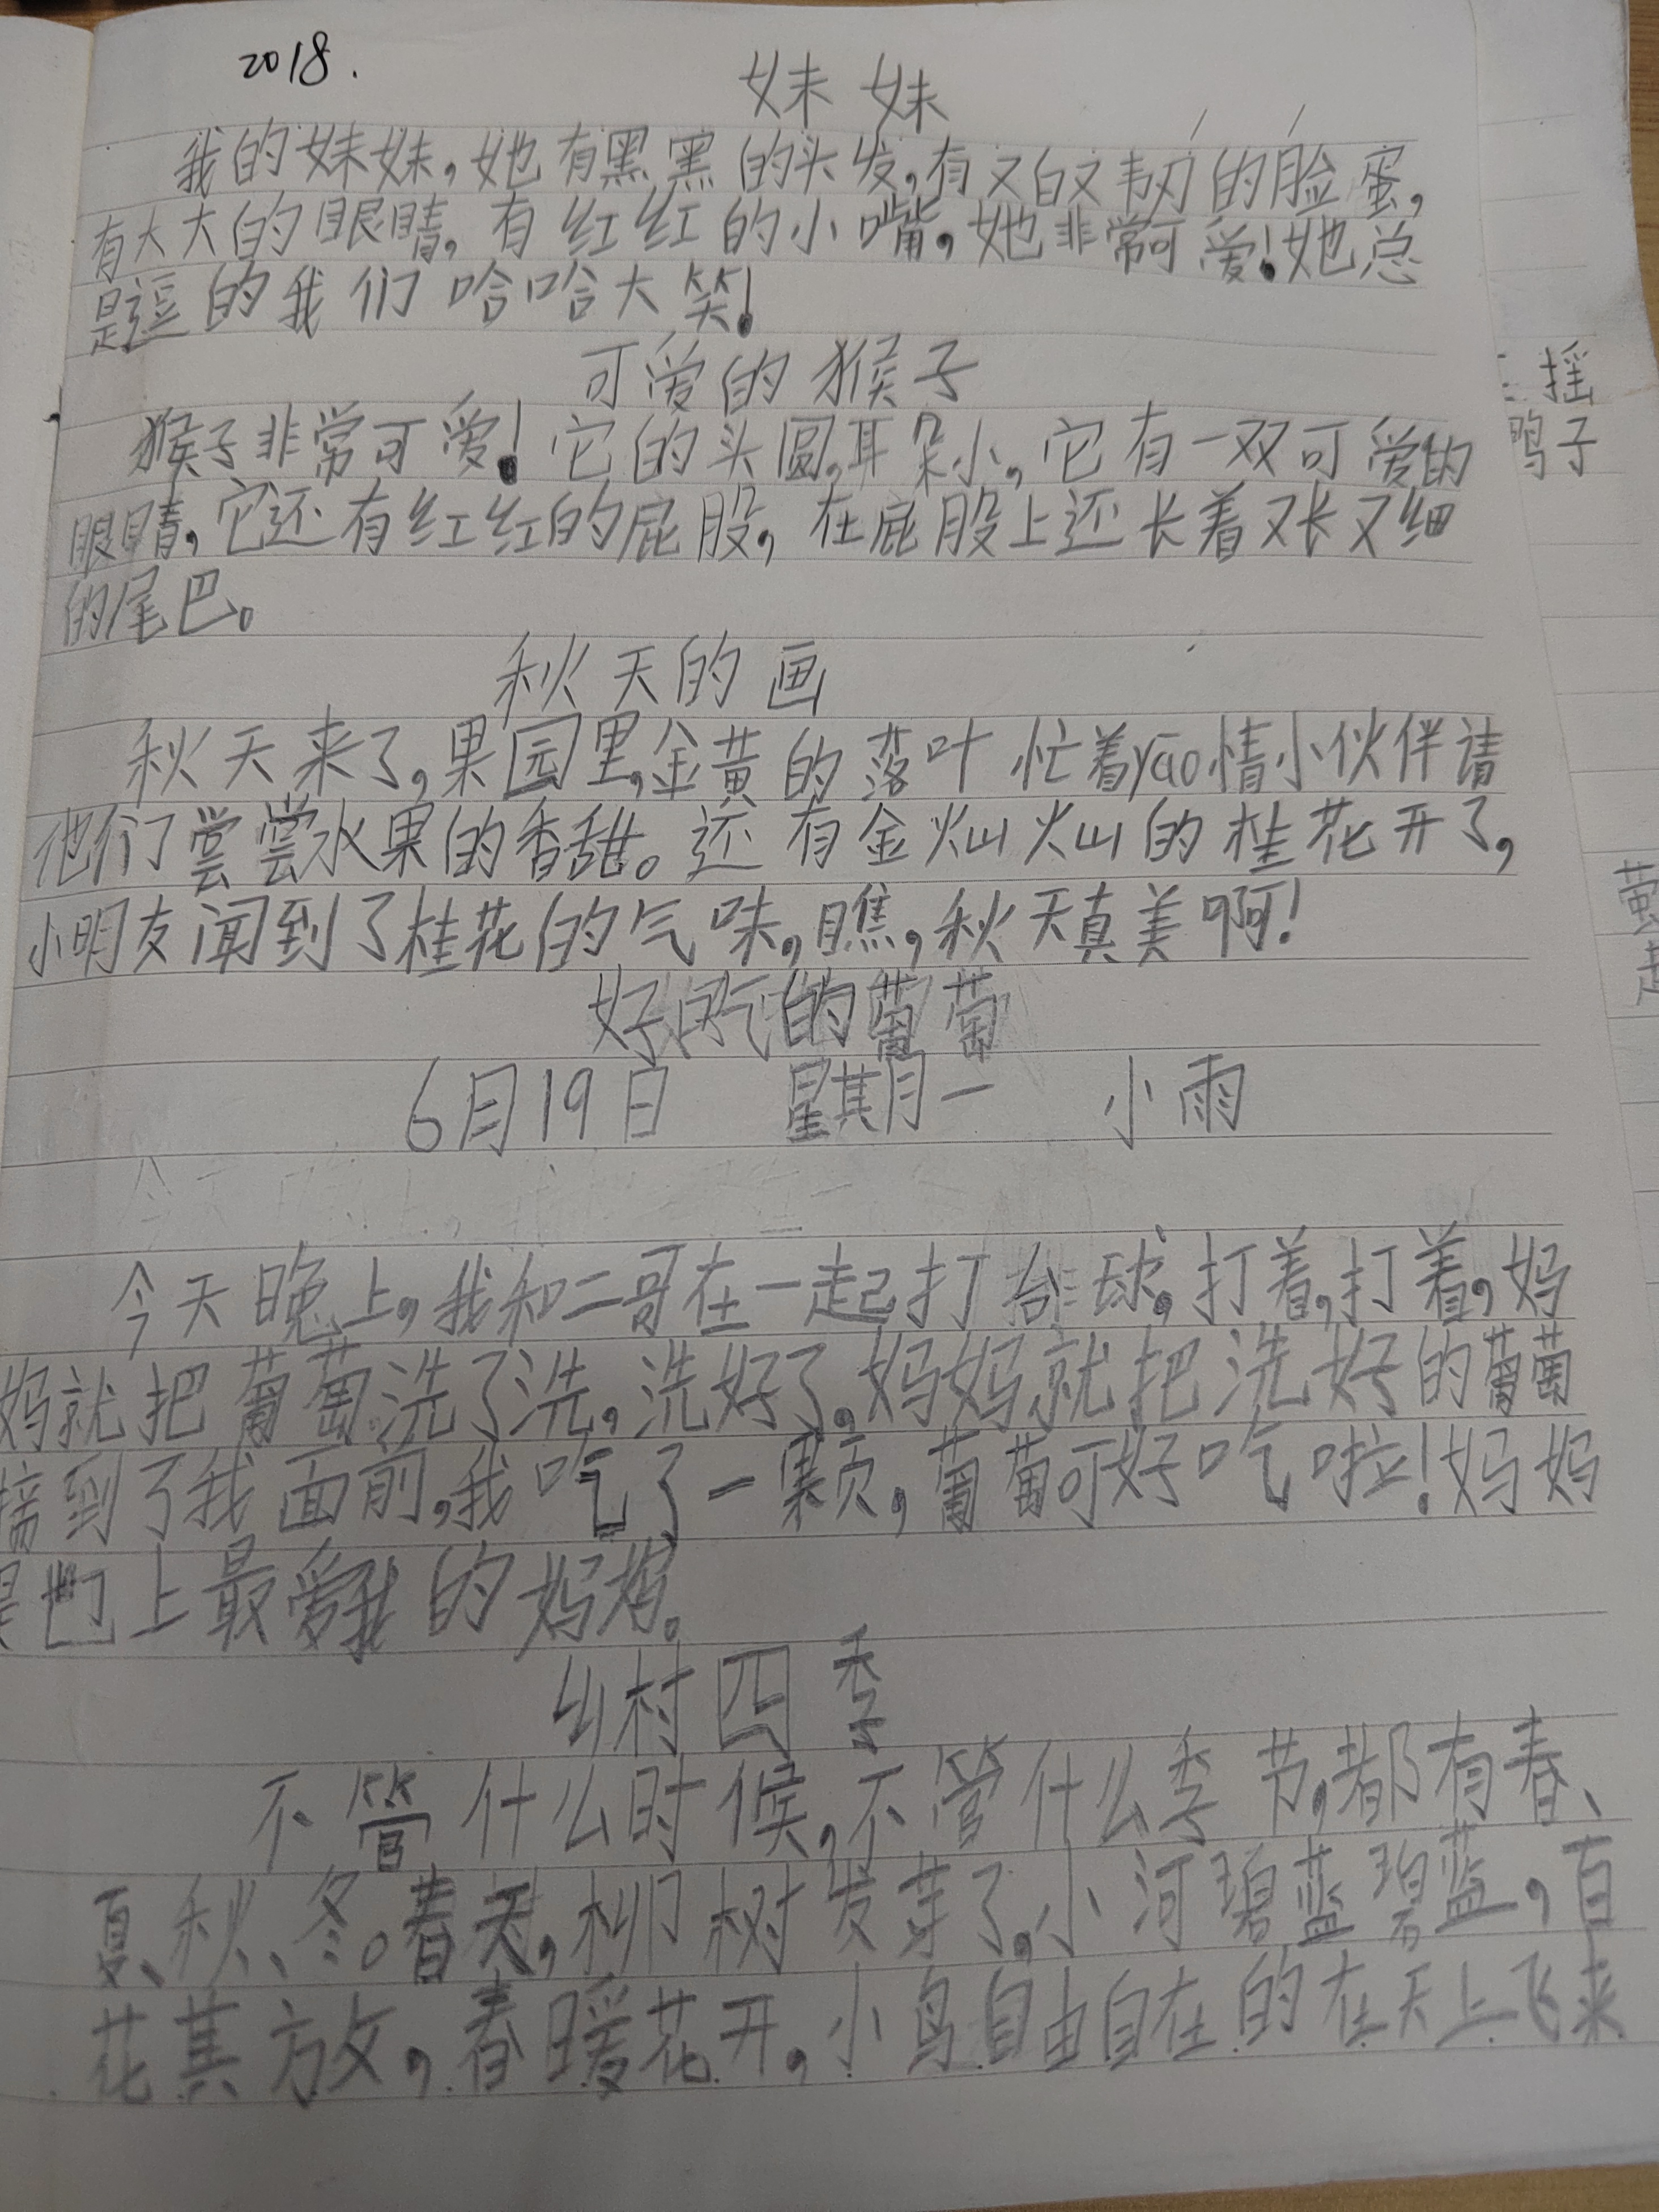 2018.
妹妹
我的妹妹,她有黑黑的头发,有又白又韧的脸蛋,
有大大的眼睛,有红红的小嘴,她非常可爱!她总
是逗的我们哈哈大笑!
可爱的猴子
猴子非常可爱!它的头圆,耳朵小,它有一双可爱的
眼睛,它还有红红的屁股,在屁股上还长着又长又细
的尾巴。
秋天的画
秋天来了,果园里,金黄的落叶忙着yāo情小伙伴请
他们尝尝水果的香甜。还有金灿灿的桂花开了,
小明友闻到了桂花的气味,瞧,秋天真美啊!
好吃的葡萄
6月19日 星期一 小雨
今天晚上,我和二哥在一起打排球,打着,打着,妈
妈就把葡萄洗了洗,洗好了,妈妈就把洗好的葡萄
到了我面前,我吃了一颗,葡萄可好吃啦!妈妈
上最爱我的妈妈。
乡村四季
不管什么时候,不管什么季节,都有春、
夏、秋、冬。春天,柳树发芽了,小河碧蓝碧蓝,百
花其放,春暖花开,小鸟自由自在的在天上飞来
摇
鸭子